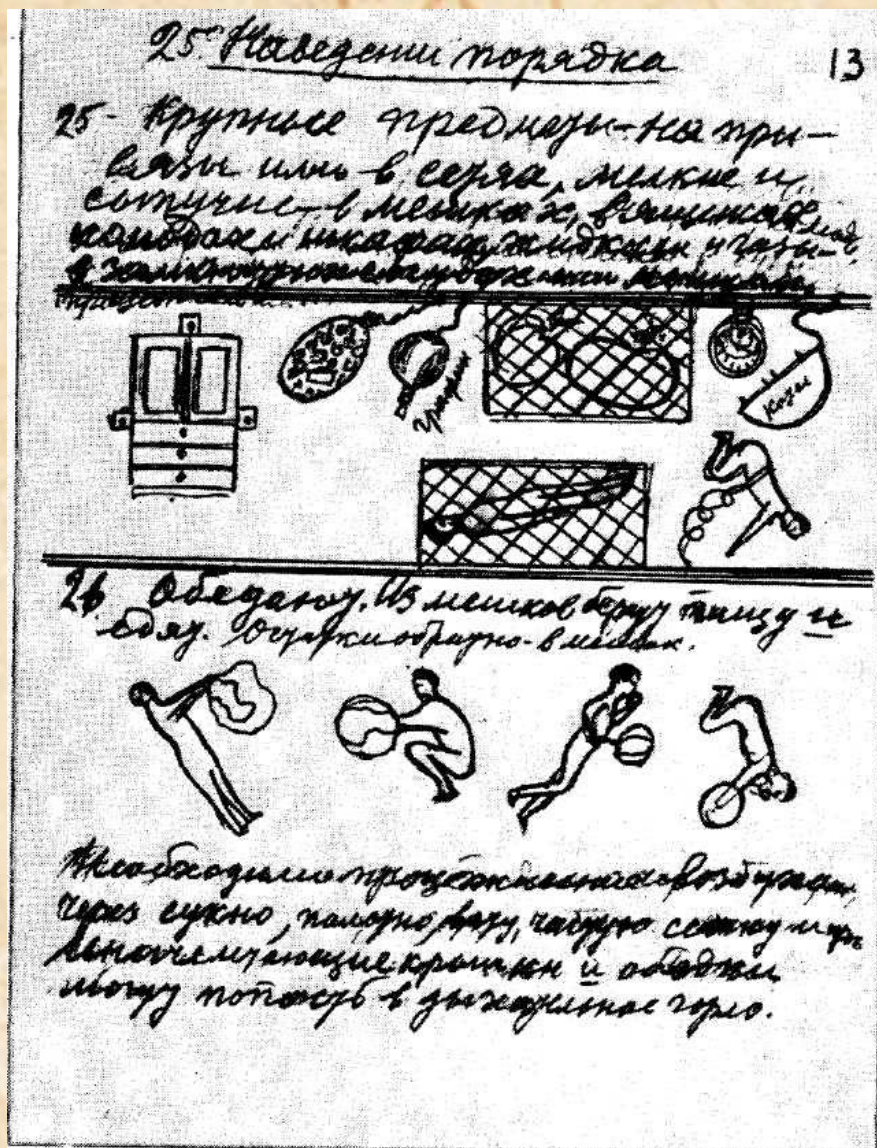 25 Наведении порядка 13
25 - Крупные предметы - на при-
вязы или в сетях, мелкие и
сыпучие - в мешках, в ящиках
комодах и шкафах, жидкие и газы -
в
Козы
26 Обедают. Из мешков берут пищу и
едят. Остатки обратно - в мешок.
Необходимо процеживание воздуха
через сукно, полотно, вату, частую сетку и
крошки и объедки
могут попасть в дыхательное горло.